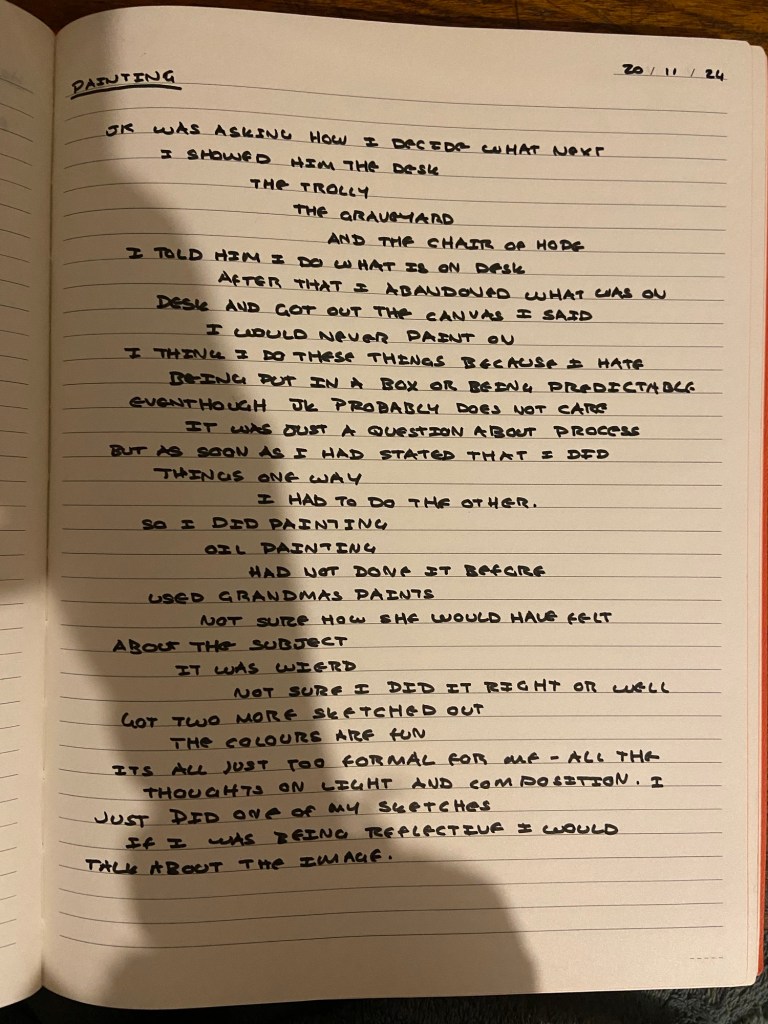 PAINTING
20 / 11 / 24
JK WAS ASKING HOW I DECIDE WHAT NEXT
I SHOWED HIM THE DESK
THE TROLLY
THE GRAVEYARD
AND THE CHAIR OF HOPE
I TOLD HIM I DO WHAT IS ON DESK
AFTER THAT I ABANDONED WHAT WAS ON
DESK AND GOT OUT THE CANVAS I SAID
I WOULD NEVER PAINT ON
I THINK I DO THESE THINGS BECAUSE I HATE
BEING PUT IN A BOX OR BEING PREDICTABLE
EVENTHOUGH JK PROBABLY DOES NOT CARE
IT WAS JUST A QUESTION ABOUT PROCESS
BUT AS SOON AS I HAD STATED THAT I DID
THINGS ONE WAY
I HAD TO DO THE OTHER.
SO I DID PAINTING
OIL PAINTING
HAD NOT DONE IT BEFORE
USED GRANDMAS PAINTS
NOT SURE HOW SHE WOULD HAVE FELT
ABOUT THE SUBJECT
IT WAS WIERD
NOT SURE I DID IT RIGHT OR WELL
GOT TWO MORE SKETCHED OUT
THE COLOURS ARE FUN
ITS ALL JUST TOO FORMAL FOR ME - ALL THE
THOUGHTS ON LIGHT AND COMPOSITION. I
JUST DID ONE OF MY SKETCHES
IF I WAS BEING REFLECTIVE I WOULD
TALK ABOUT THE IMAGE.